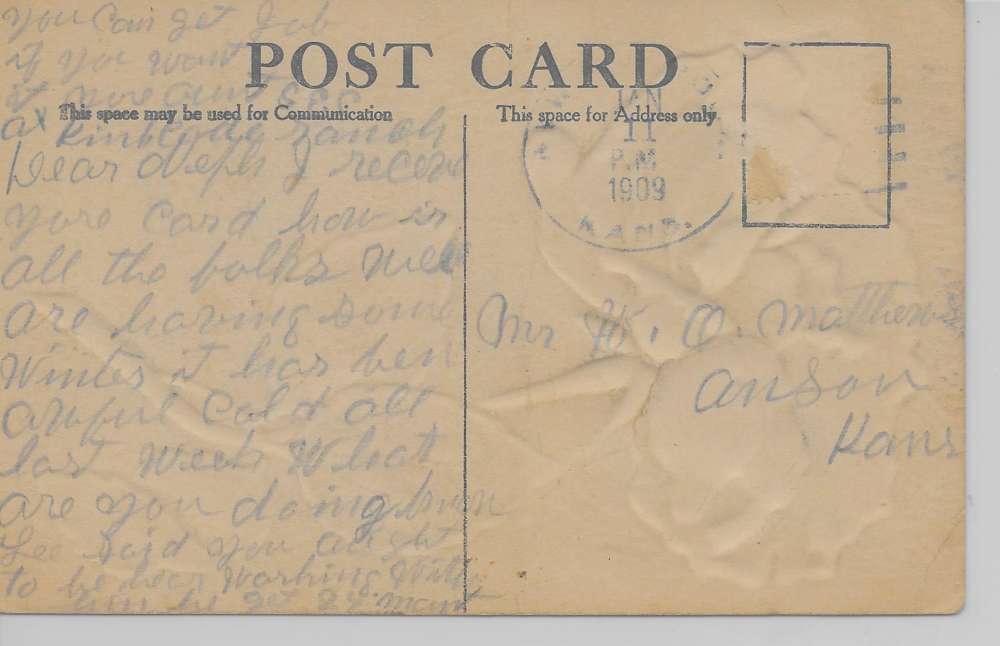 you can get Job
if you want
it
POST CARD
This space may be used for Communication
This space for Address only
JAN
11
P.M.
1909
Dear I receive
yore Card how is
all the folks Well
are having Some
Winter it has ben
awful Cold all
last Week What
are you doing
Lee Said you aught
to be hear Working With
him he get
Mr W. O. Matthews
anson
Kans